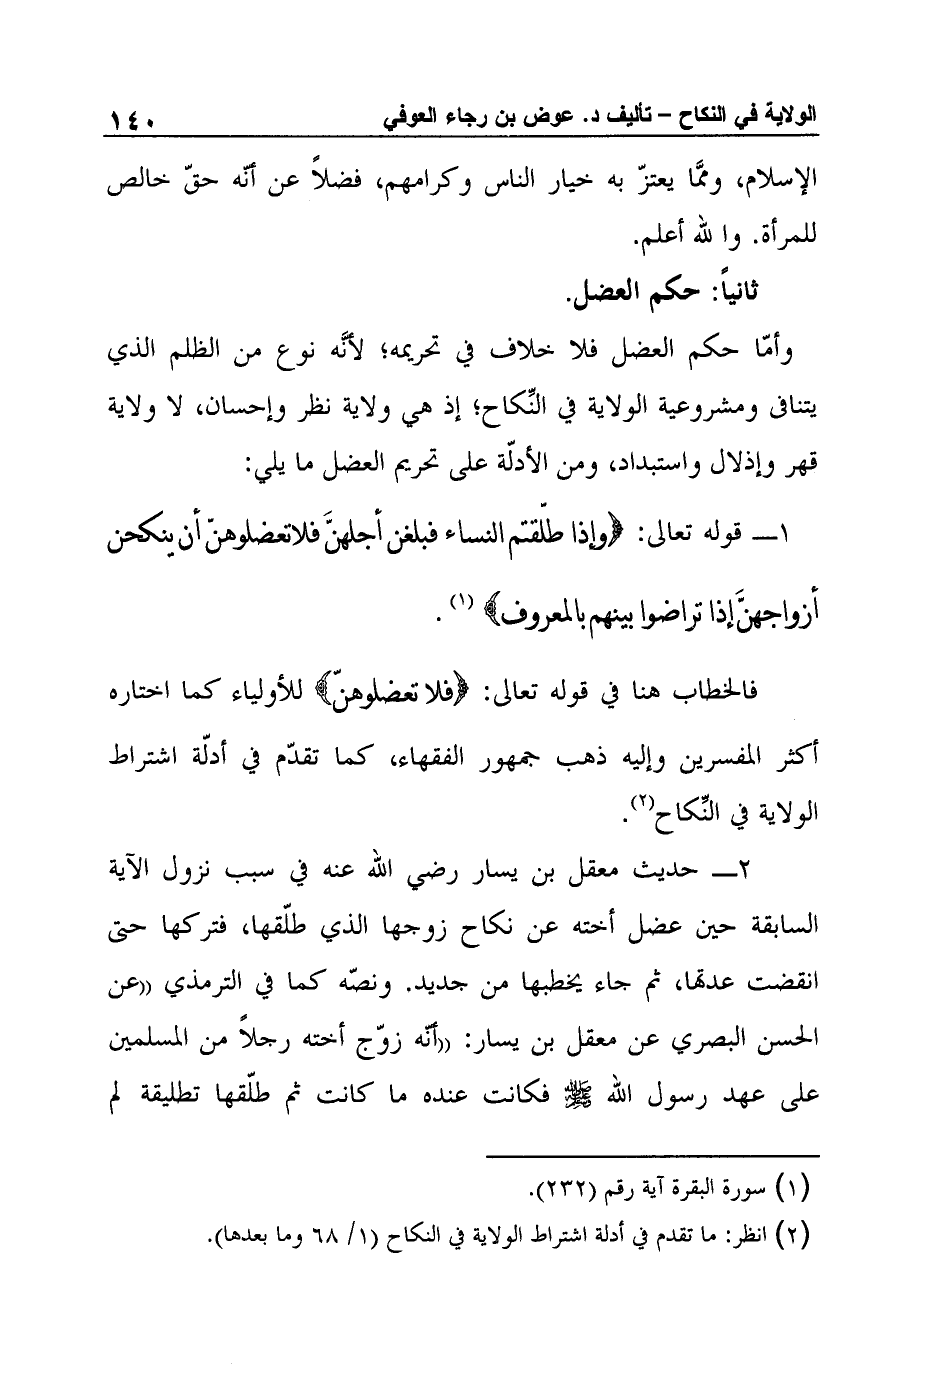 الولاية في النكاح – تأليف د. عوض بن رجاء العوفي ١٤٠
الإسلام، وممَّا يعتزّ به خيار الناس وكرامهم، فضلاً عن أنّه حقّ خالص
للمرأة. وا لله أعلم.
ثانياً: حكم العضل.
وأمّا حكم العضل فلا خلاف في تحريمه؛ لأنَّه نوع من الظلم الذي
يتنافى ومشروعية الولاية في النِّكاح؛ إذ هي ولاية نظر وإحسان، لا ولاية
قهر وإذلال واستبداد، ومن الأدلّة على تحريم العضل ما يلي:
١ــ قوله تعالى: ﴿وإذا طلّقتم النساء فبلغن أجلهنَّ فلا تعضلوهنّ أن ينكحن
أزواجهنَّ إذا تراضوا بينهم بالمعروف﴾ (١).
فالخطاب هنا في قوله تعالى: ﴿فلا تعضلوهنّ﴾ للأولياء كما اختاره
أكثر المفسرين وإليه ذهب جمهور الفقهاء، كما تقدّم في أدلّة اشتراط
الولاية في النِّكاح(٢).
٢ــ حديث معقل بن يسار رضي الله عنه في سبب نزول الآية
السابقة حين عضل أخته عن نكاح زوجها الذي طلّقها، فتركها حتى
انقضت عدتها، ثم جاء يخطبها من جديد. ونصّه كما في الترمذي ((عن
الحسن البصري عن معقل بن يسار: ((أنّه زوّج أخته رجلاً من المسلمين
على عهد رسول الله ﷺ فكانت عنده ما كانت ثم طلّقها تطليقة لم
(١) سورة البقرة آية رقم (٢٣٢).
(٢) انظر: ما تقدم في أدلة اشتراط الولاية في النكاح (١/ ٦٨ وما بعدها).